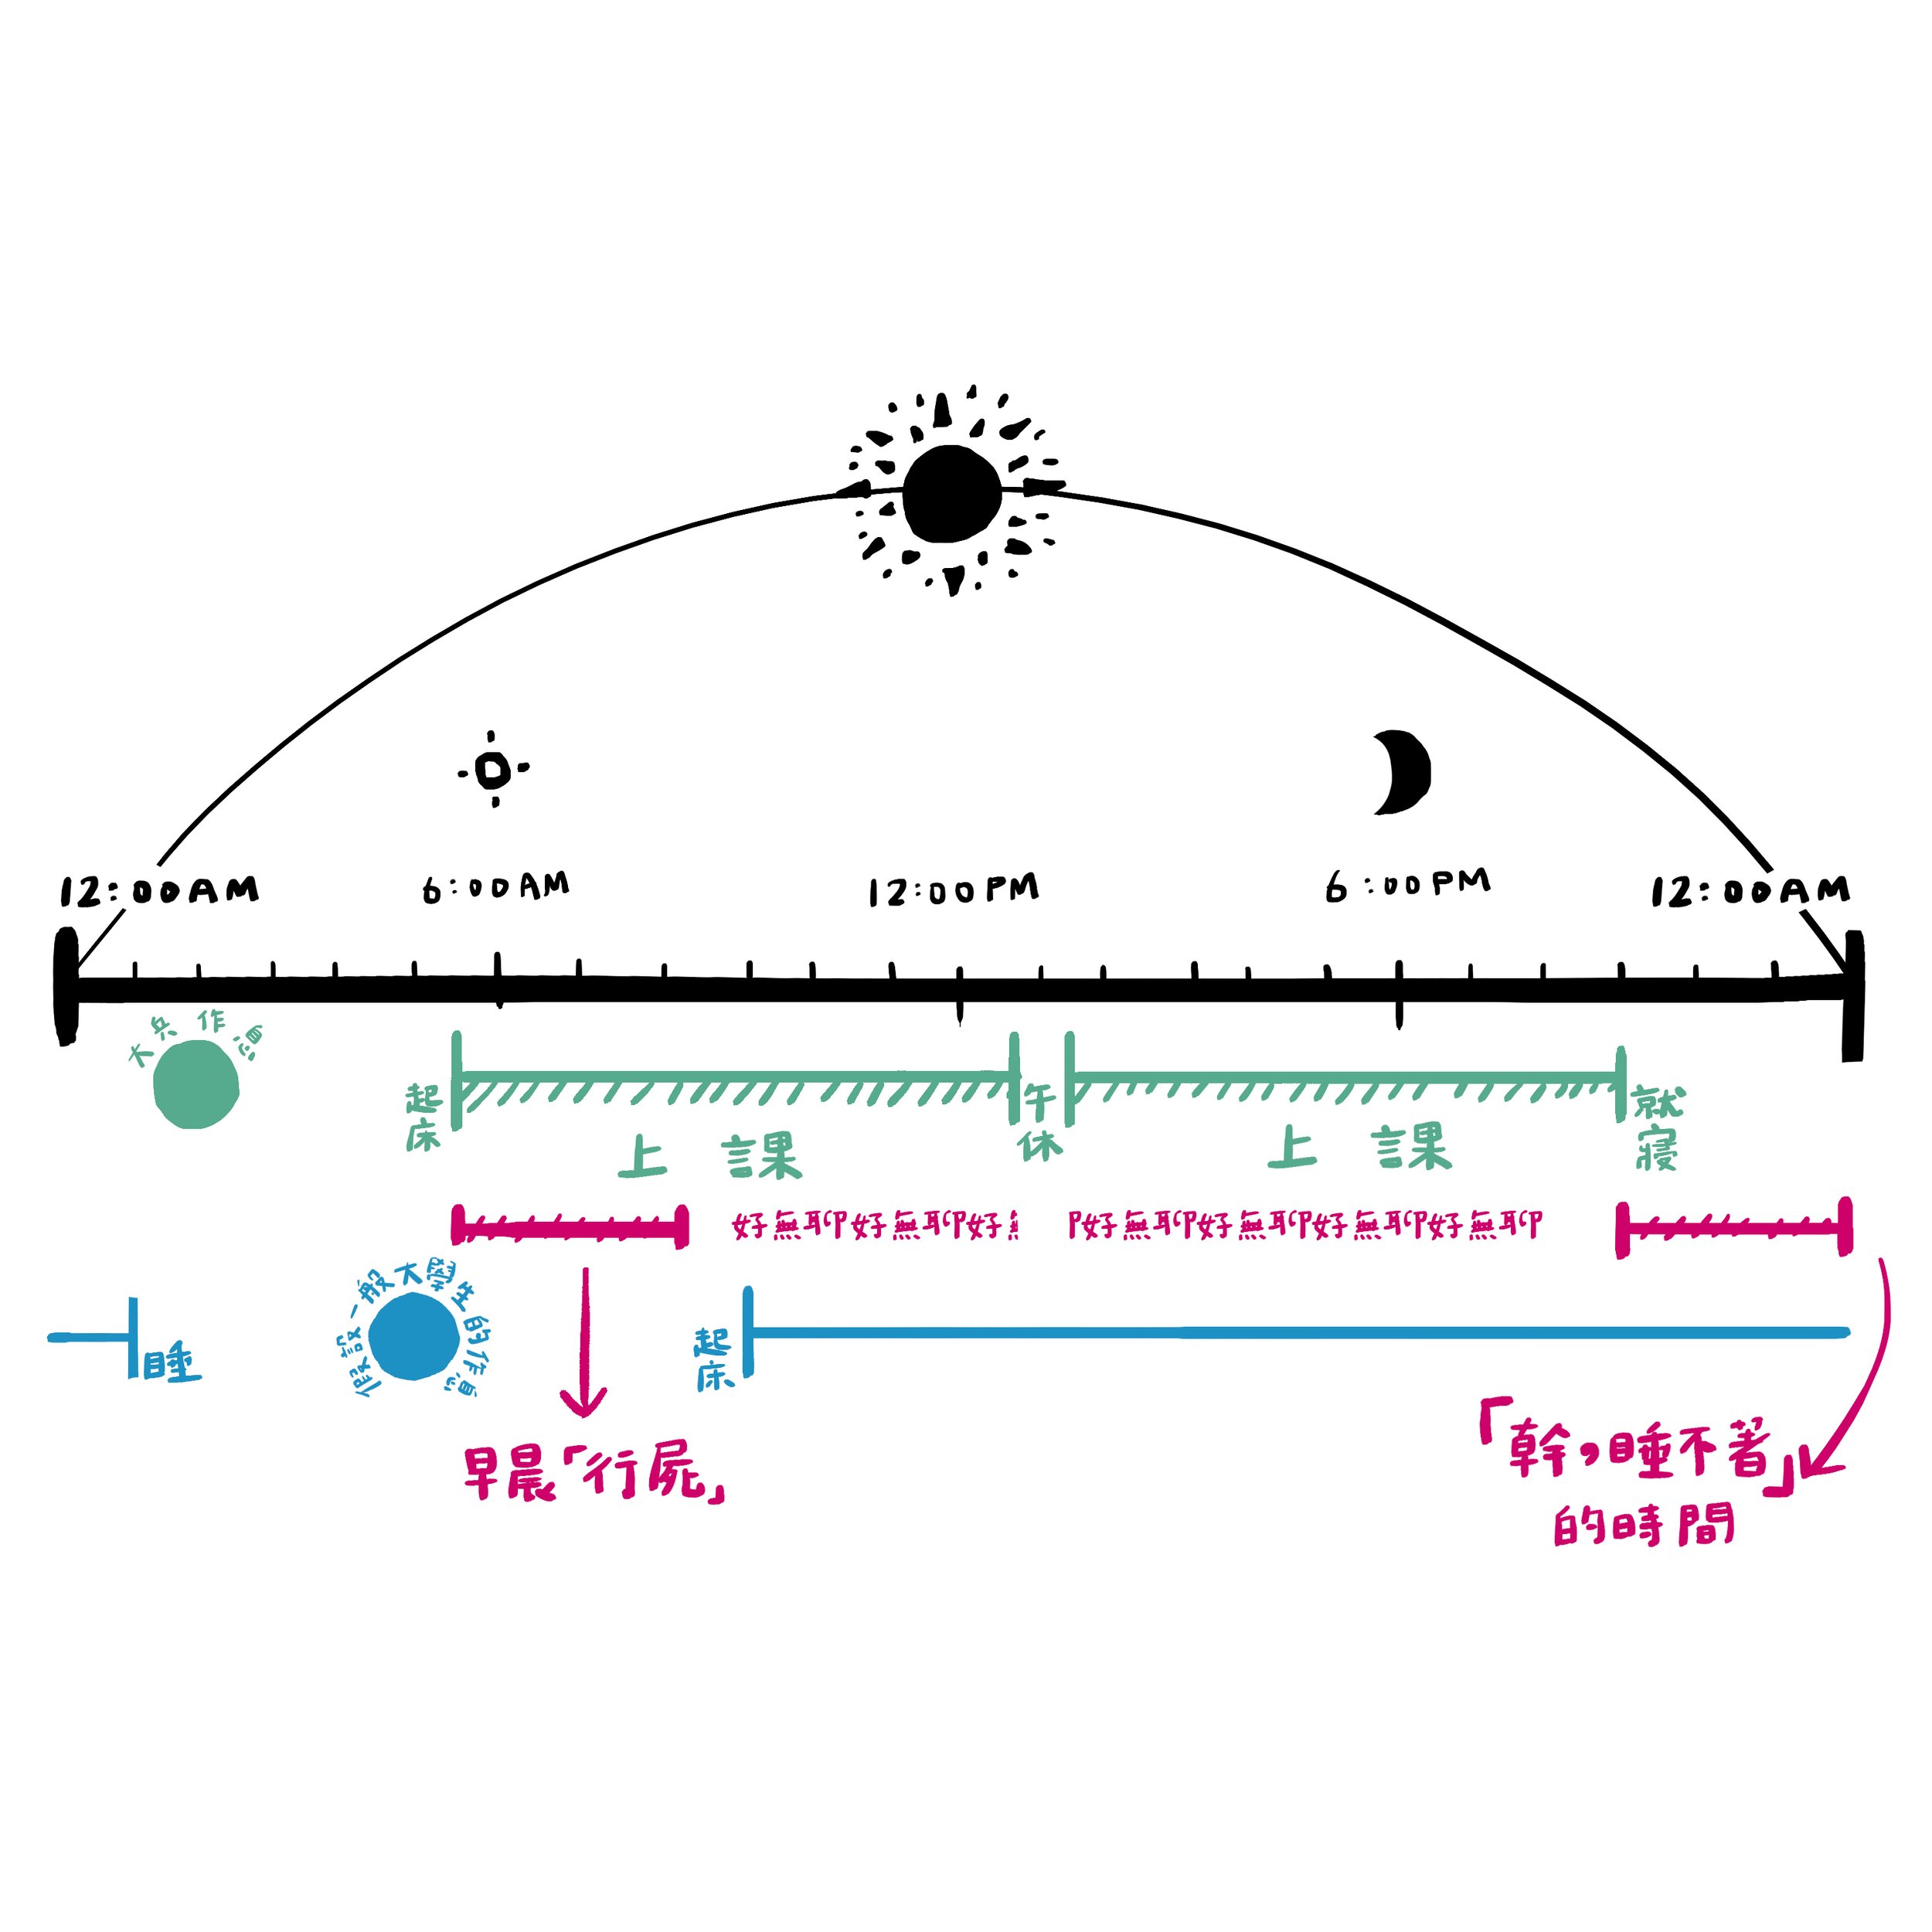 12:00AM
6:00AM
12:00PM
6:00PM
12:00AM
大宗作息
起床
上課
午休
上課
就寢
好無聊好無聊好無
好無聊好無聊好無聊好無聊
睡
假設一般大學生的作息
起床
早晨「行屍」
「幹,睡不著」
的時間